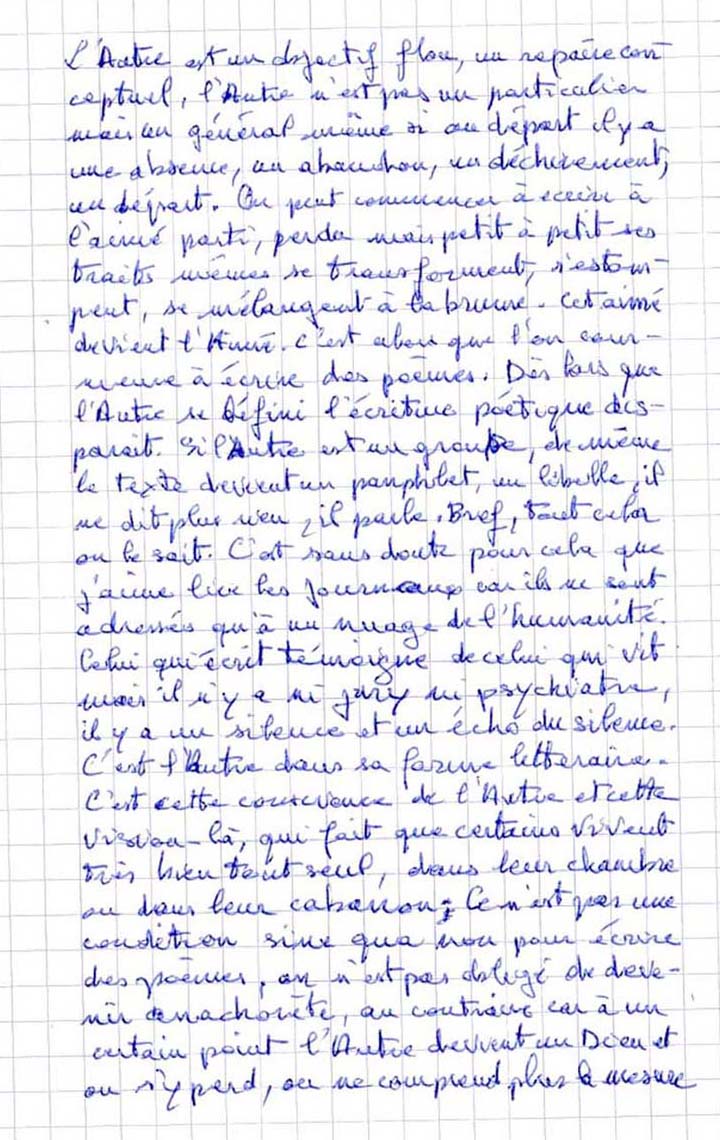 L'Autre est un objectif flou, un repaire con-
ceptuel, l'Autre n'est pas un particulier
mais un général même si au départ il y a
une absence, un abandon, un déchirement,
un départ. On peut commencer à écrire à
l'aimé parti, perdu mais petit à petit ses
traits mêmes se transforment, s'estom-
pent, se mélangent à la brume. Cet aimé
devient l'Aimé. C'est alors que l'on com-
mence à écrire des poèmes. Dès lors que
l'Autre se défini l'écriture poétique dis-
parait. Si l'Autre est un groupe, de même
le texte devient un panphlet, un libelle, il
ne dit plus rien, il parle. Bref, tout cela
on le sait. C'est sans doute pour cela que
j'aime lire les journaux car ils ne sont
adressés qu'à un nuage de l'humanité.
Celui qui écrit témoigne de celui qui vit
mais il n'y a ni jury ni psychiatre,
il y a un silence et un écho du silence.
C'est l'Autre dans sa forme litteraire.
C'est cette conscience de l'Autre et cette
vision-là, qui fait que certains vivent
très bien tout seul, dans leur chambre
ou dans leur cabanon; Ce n'est pas une
condition sine qua non pour écrire
des poèmes, on n'est pas obligé de deve-
nir anachorète, au contraire car à un
certain point l'Autre devient un Dieu et
on s'y perd, on ne comprend plus la mesure